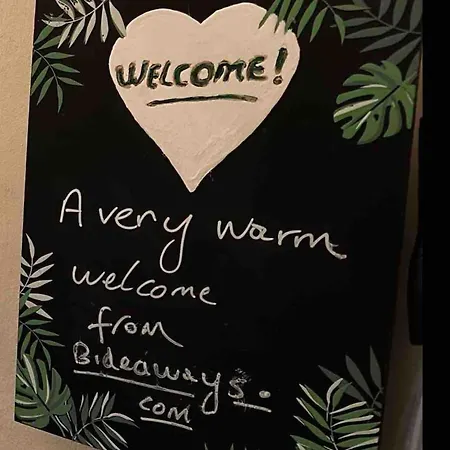 WELCOME!
A very warm
welcome
from
Bideaways.
com